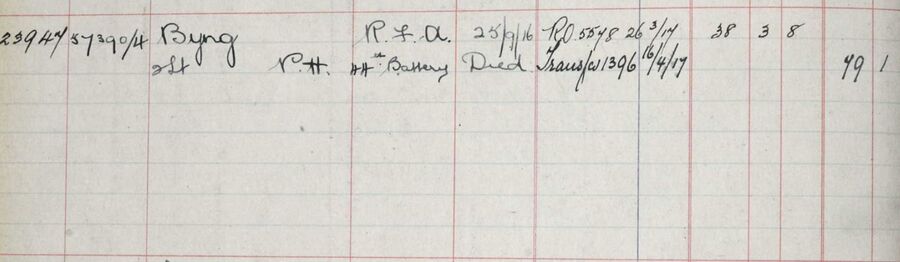 23947 57390/4 Byng R.F.A. 25/9/16 R.O. 5578 26 3/17 38 3 8
2Lt P.H. 44th Battery Died Transfer 1396 16/4/17 79 1